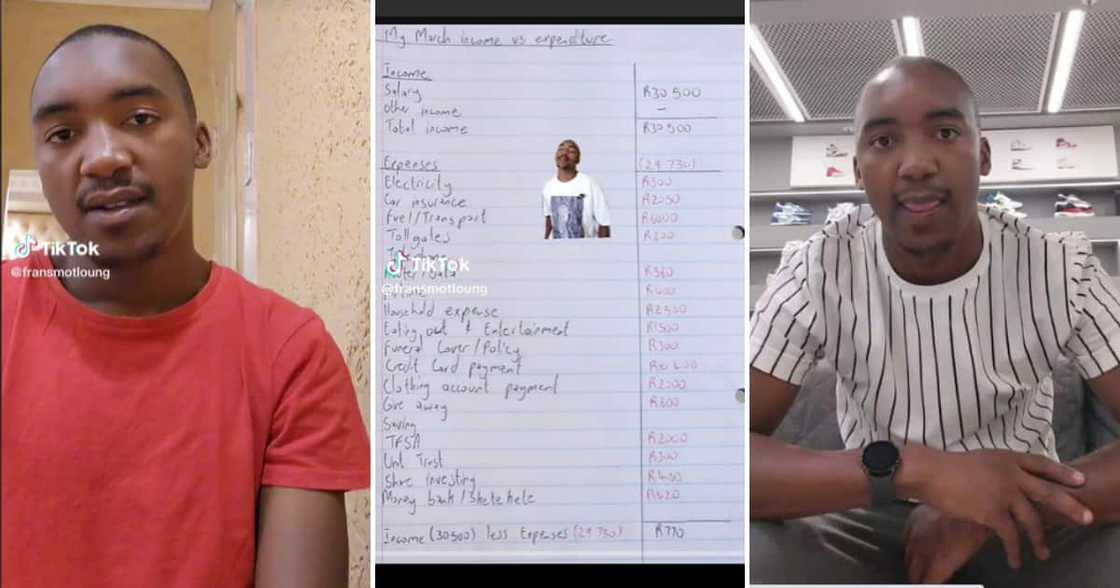 TikTok
@fransmotloung
My March income vs expenditure
Income
Salary R30 500
Other income –
Total income R30 500
Expenses (29 730)
Electricity
Car insurance R2050
Fuel/Transport R6000
Tollgates
TikTok
@fransmotloung
R360
R400
Household expense R2500
Eating out & Entertainment R1500
Funeral Cover/Policy R300
Credit Card payment
Clothing account payment R2000
Give away
Saving
TFSA R2000
Unit Trust
Share investing
Money bank/
Income (30 500) less Expenses (29 730) R770